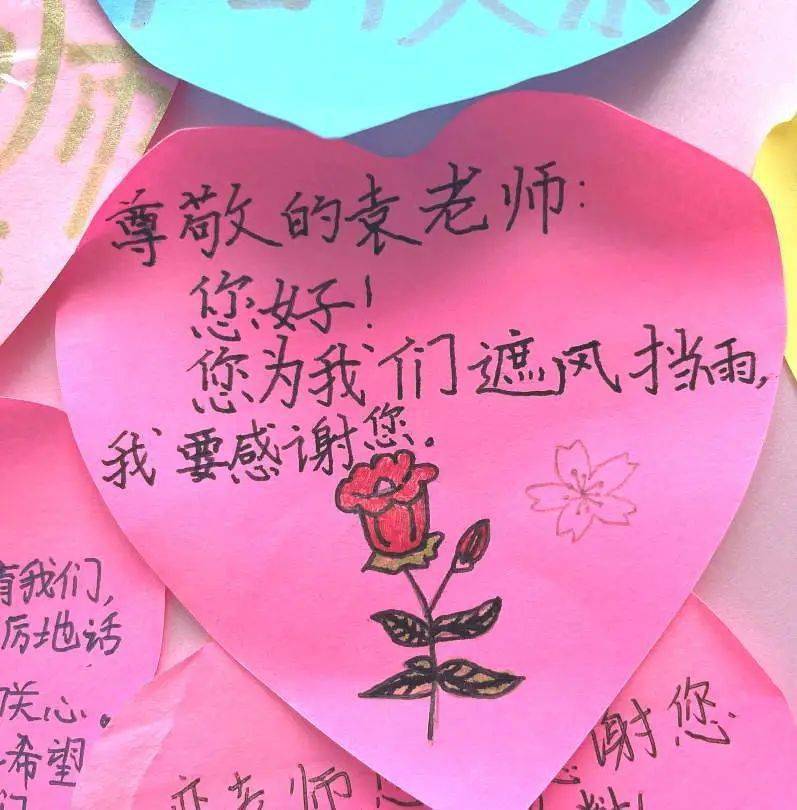 尊敬的袁老师:
您好!
您为我们遮风挡雨,
我要感谢您。
我们,
厉地话
关心。
希望
们
老师
谢您